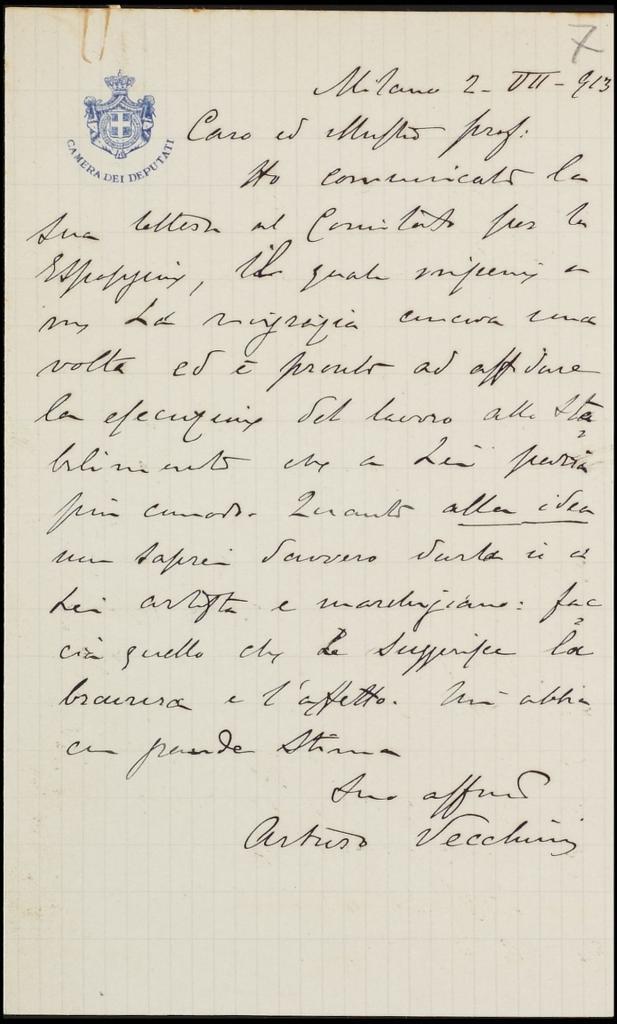 7
Milano 2-VII-913
CAMERA DEI DEPUTATI
Caro ed illustre prof:
Ho comunicato la
sua lettera al Comitato per la
Esposizione, il quale insieme a
me La ringrazia ancora una
volta ed è pronto ad affidare
la esecuzione del lavoro allo sta=
bilimento che a Lei parrà
più comodo. Quanto alla idea
non saprei davvero darla io a
Lei artista e marchigiano: fac=
cia quello che Le suggerisce la
bravura e l'affetto. Mi abbia
con grande stima
Suo affmo
Arturo Vecchini